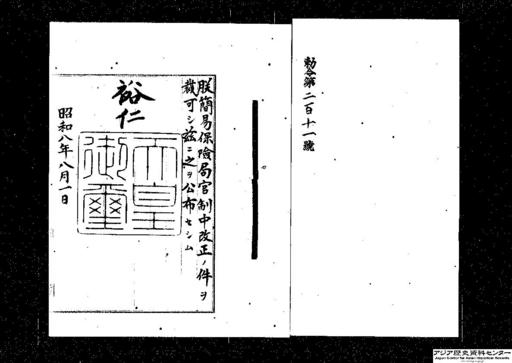 勅令第二百十一號
朕簡易保險局官制中改正ノ件ヲ
裁可シ茲ニ之ヲ公布セシム
裕仁
天皇
御璽
昭和八年八月一日
アジア歴史資料センター
Japan Center for Asian Historical Records